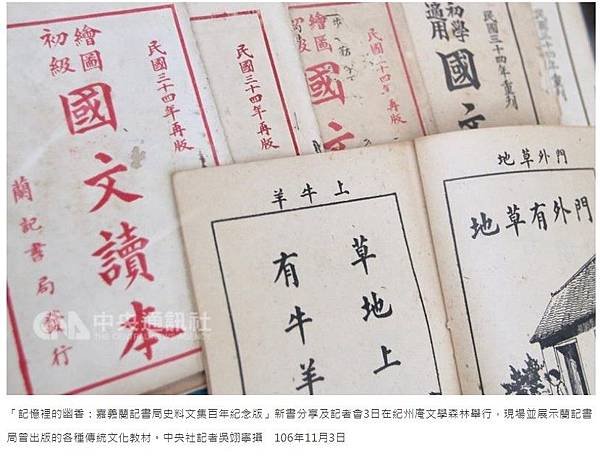 繪圖
初級
國文讀本
民國三十四年再版
蘭記書局發行
民國三十四年再版
民國三十四年再版
初學
適用
國文
民國三十四年重刊
門外草地
門外有草地
上牛羊
草地上
有牛羊
CNA 中央通訊社
「記憶裡的幽香：嘉義蘭記書局史料文集百年紀念版」新書分享及記者會3日在紀州庵文學森林舉行，現場並展示蘭記書
局曾出版的各種傳統文化教材。中央社記者吳翊寧攝　106年11月3日